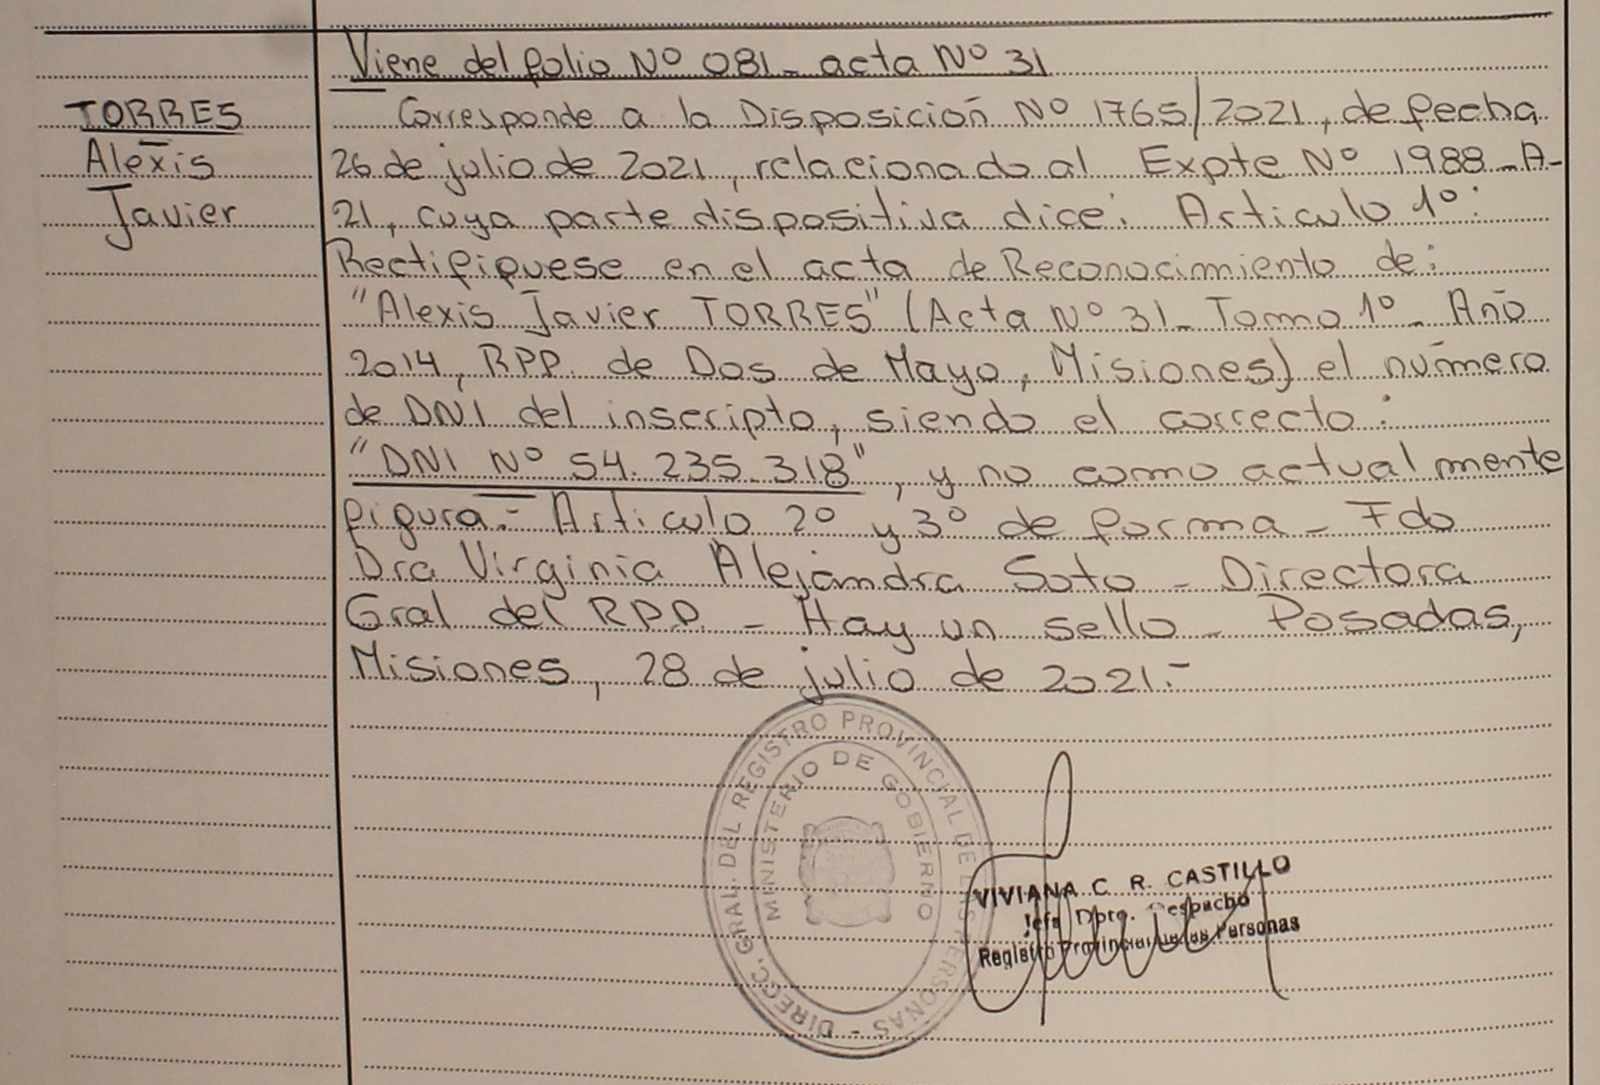 Viene del folio Nº 081 - acta Nº 31
TORRES
Alexis
Javier
Corresponde a la Disposición Nº 1765/2021, de fecha
26 de julio de 2021, relacionado al Expte Nº 1988-A-
21, cuya parte dispositiva dice: Articulo 1º:
Rectifiquese en el acta de Reconocimiento de:
"Alexis Javier TORRES" (Acta Nº 31 - Tomo 1º - Año
2014, RPP. de Dos de Mayo, Misiones) el número
de DNI del inscripto, siendo el correcto:
"DNI Nº 54.235.318", y no como actualmente
figura.- Articulo 2º y 3º de forma - Fdo
Dra Virginia Alejandra Soto - Directora
Gral del RPP. - Hay un sello - Posadas,
Misiones, 28 de julio de 2021.-
DIRECC. GRAL. DEL REGISTRO PROVINCIAL DE LAS PERSONAS -
MINISTERIO DE GOBIERNO
VIVIANA C. R. CASTILLO
Jefa Dpto. Despacho
Registro Provincial de las Personas